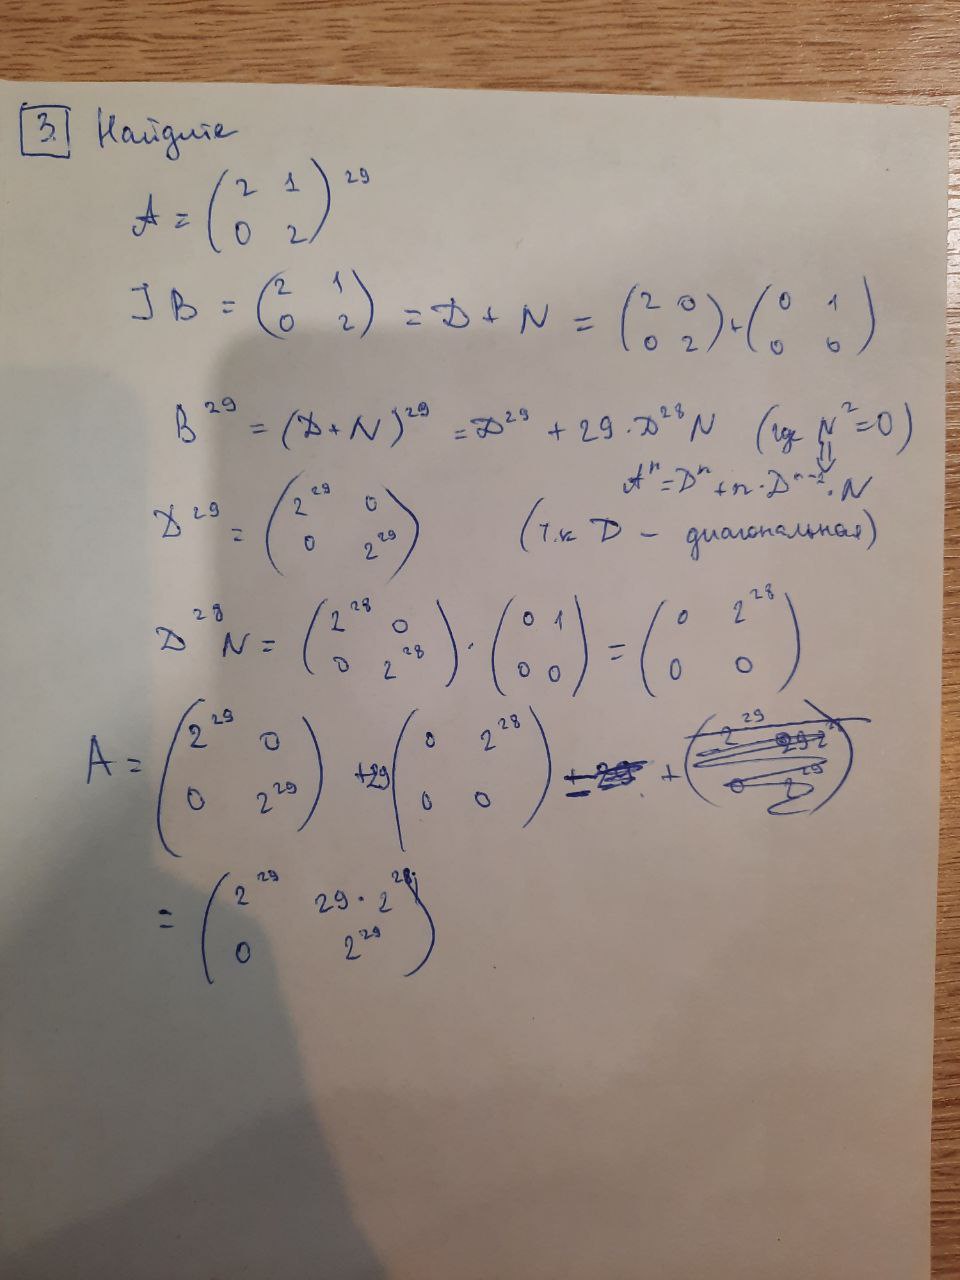 3. Найдите
A = (2 1 0 2)^29
] B = (2 1 0 2) = D + N = (2 0 0 2) + (0 1 0 0)
B^29 = (D + N)^29 = D^29 + 29 · D^28 N (где N^2 = 0)
⇓
A^n = D^n + n · D^n-1 · N
D^29 = (2^29 0 0 2^29) (т.к D – диагональная)
D^28 N = (2^28 0 0 2^28) · (0 1 0 0) = (0 2^28 0 0)
A = (2^29 0 0 2^29) + 29 (0 2^28 0 0) +
= (2^29 29 · 2^28 0 2^29)